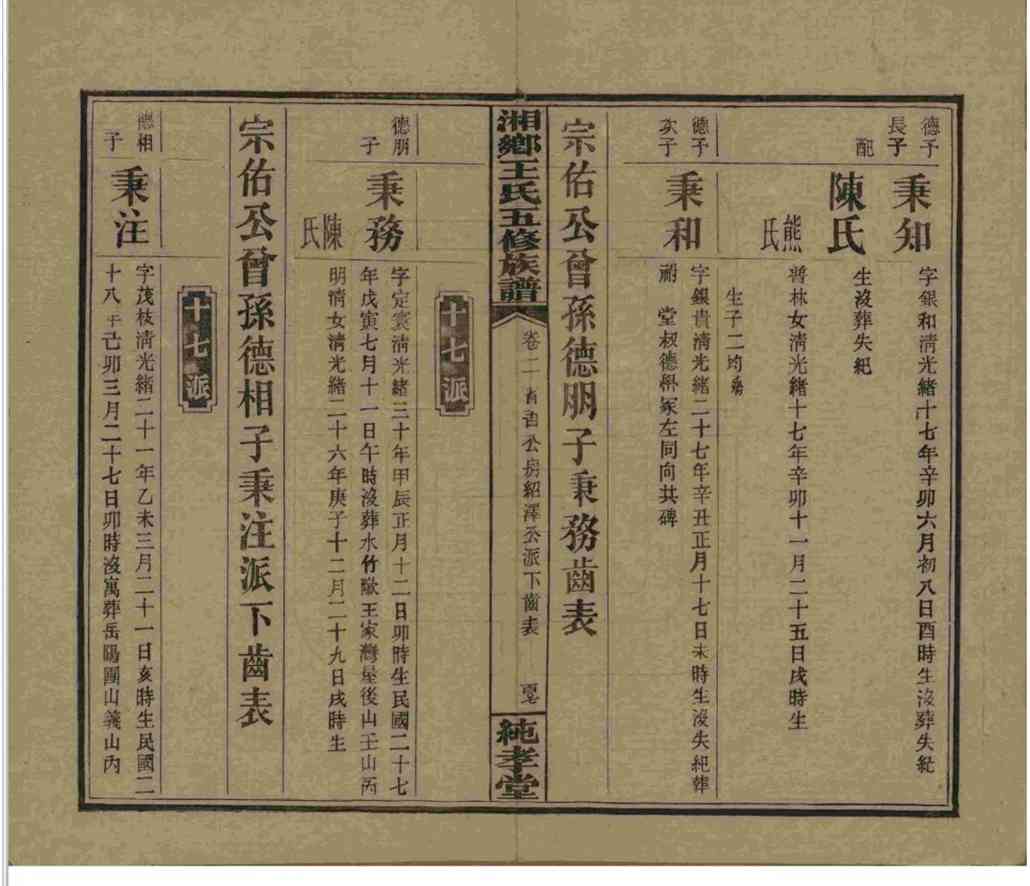 德予
長子
秉知
字銀和淸光緒十七年辛卯六月初八日酉時生沒葬失紀
配
陳氏
生沒葬失紀
熊氏
普林女淸光緒十七年辛卯十一月二十五日戌時生
生子二均殤
德予
次子
秉和
字銀貴淸光緒二十七年辛丑正月十七日未時生沒失紀葬
祠堂叔德 冢左同向共碑
宗佑公曾孫德朋子秉務齒表
湘鄉王氏五修族譜
卷二 公房紹澤公派下齒表
純孝堂
十七派
德朋
子
秉務
字定寰淸光緒三十年甲辰正月十二日卯時生民國二十七
年戊寅七月十一日午時沒葬水竹 王家灣屋後山壬山丙
陳氏
明淸女淸光緒二十六年庚子十二月二十九日戌時生
宗佑公曾孫德相子秉注派下齒表
十七派
德相
子
秉注
字茂枝淸光緒二十一年乙未三月二十一日亥時生民國二
十八年己卯三月二十七日卯時沒寓葬岳陽團山義山內